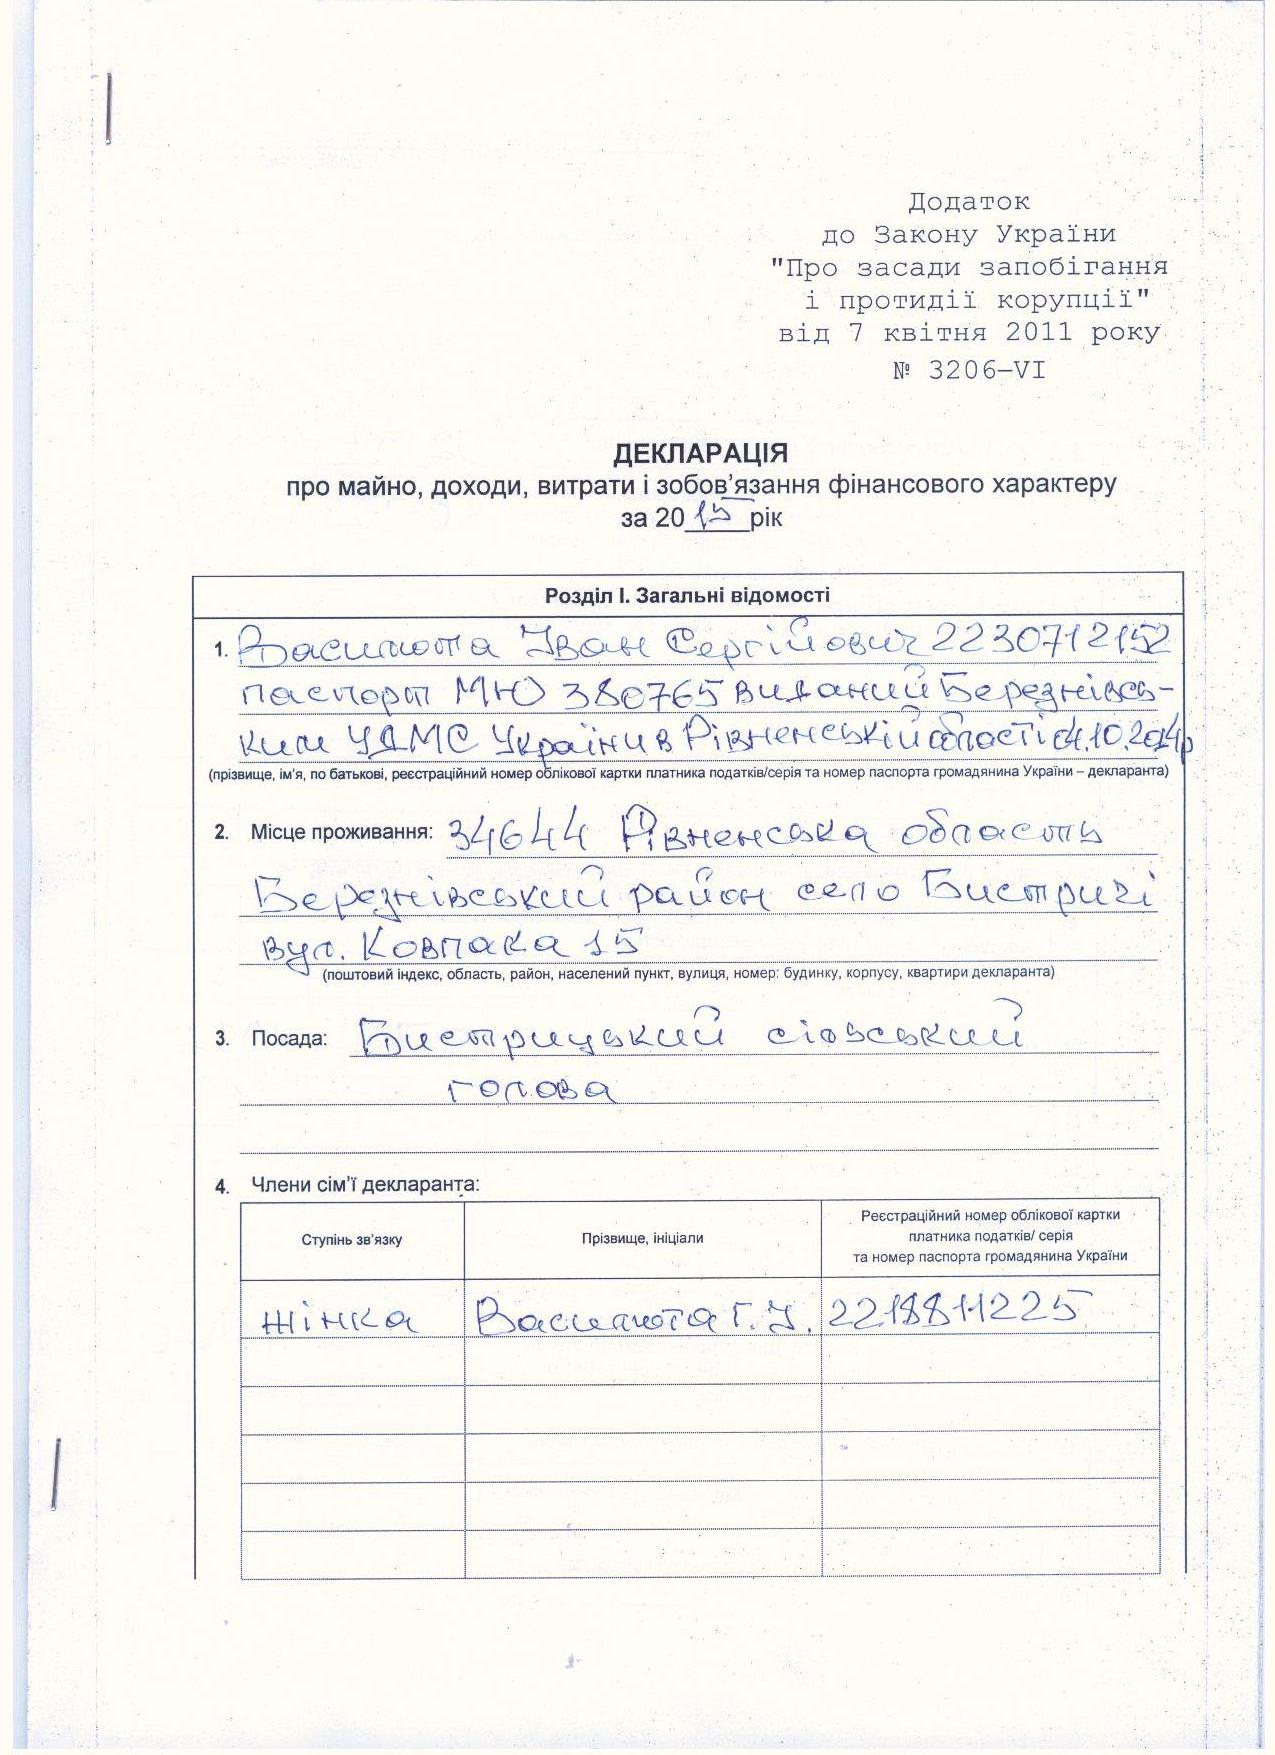 Додаток
до Закону України
"Про засади запобігання
і протидії корупції"
від 7 квітня 2011 року
№ 3206–VI
ДЕКЛАРАЦІЯ
про майно, доходи, витрати і зобов’язання фінансового характеру
за 2015 рік
Розділ I. Загальні відомості
1. Василюта Іван Сергійович 2230712152
паспорт МЮ 380765 виданий Березнівсь-
ким УДМС України в Рівненській області 04.10.2014р
(прізвище, ім’я, по батькові, реєстраційний номер облікової картки платника податків/серія та номер паспорта громадянина України – декларанта)
2. Місце проживання: 34644 Рівненська область
Березнівський район село Бистричі
вул. Ковпака 15
(поштовий індекс, область, район, населений пункт, вулиця, номер: будинку, корпусу, квартири декларанта)
3. Посада: Бистрицький сільський
голова
4. Члени сім’ї декларанта:
Ступінь зв’язку Прізвище, ініціали Реєстраційний номер облікової картки платника податків/ серія та номер паспорта громадянина України
жінка Василюта Г. І. 2218811225